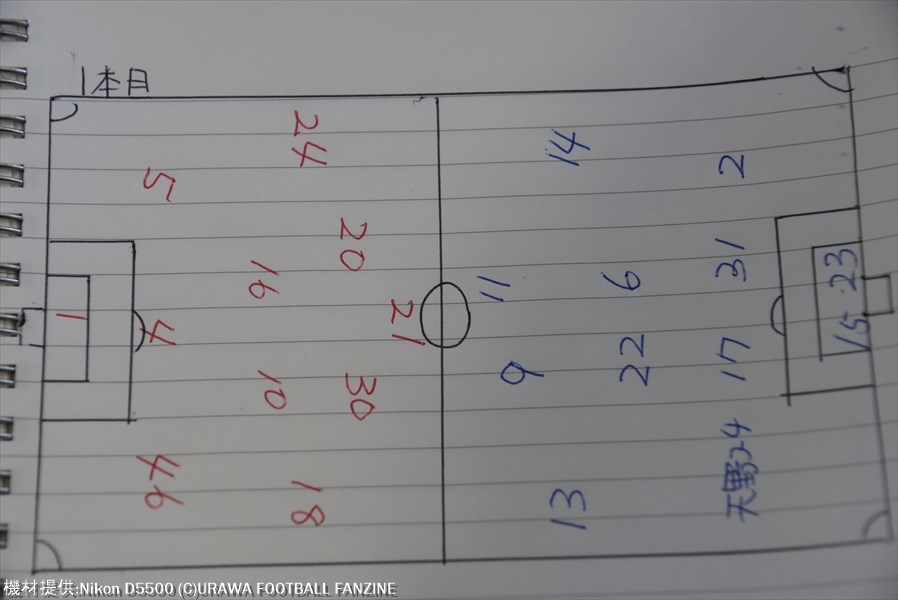 1本目
24
5
20
16
21
1
4
10
30
46
18
14
2
31
23
11
6
15
22
17
9
天野24
13
機材提供:Nikon D5500 (C)URAWA FOOTBALL FANZINE